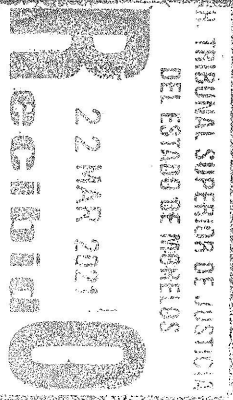 TRIBUNAL SUPERIOR DE JUSTICIA
DEL ESTADO DE MORELOS
22 MAR 2021
RecibidO